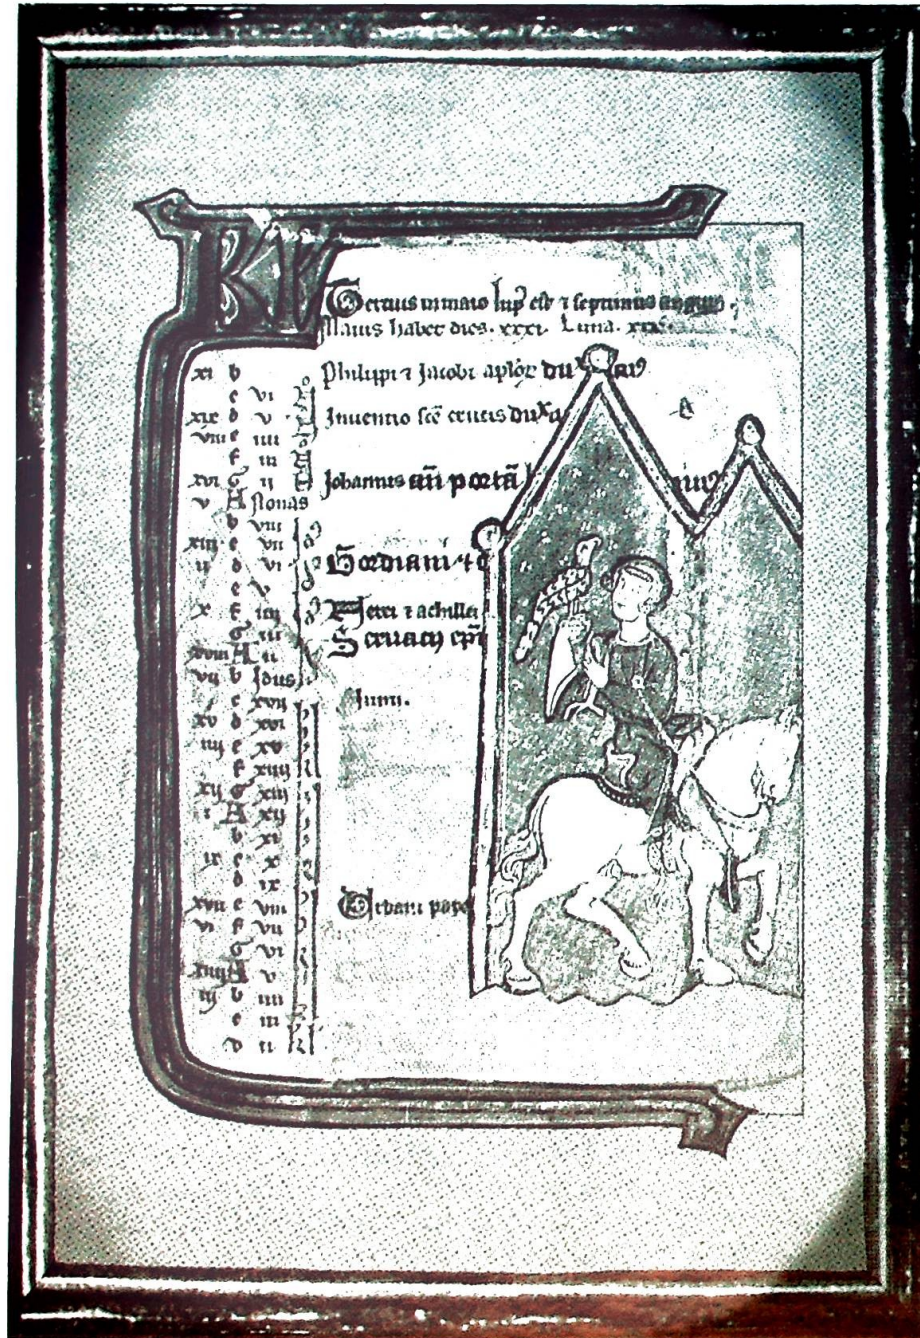 KL
Tertius in maio lup⁹ est ⁊ septimus anguis.
Maius habet dies. xxxi. Luna. xxx.
xi b Philippi ⁊ Jacobi aplōr du
c vi
xix d v Inventio scē crucis du
viii e iiii
f iii
xvi G ii Johannis an̄ portā
v A Nonas
b viii
xiii c vii
ii d vi Gordiani ⁊
e v
x f iiij Nerei ⁊ achillei
G iii Servacij ep̄i
xviii A ii
vij b Idus
c xvij Junii.
xv d xvi
iiij e xv
f xiiij
xij G xiij
i A xij
b xi
ix c x
d ix
xvii e viii Urbani pape
vi f vii
G vi
xiiij A v
iij b iiii
c iii
d ii